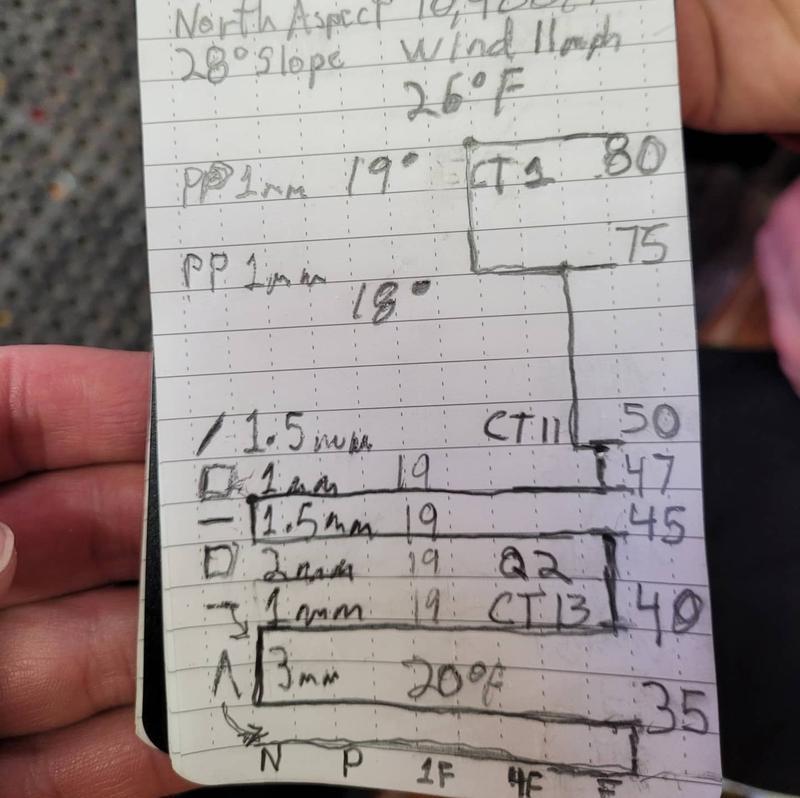 North Aspect 10,400ft
28° Slope Wind 11mph
26°F
PP 1mm 19° CT1 80
75
PP 1mm
18°
/ 1.5mm CT11 50
□ 1mm 19 47
— 1.5mm 19 45
□ 2mm 19 Q2
1mm 19 CT13 40
Λ 3mm 20°F
35
N P 1F 4F F